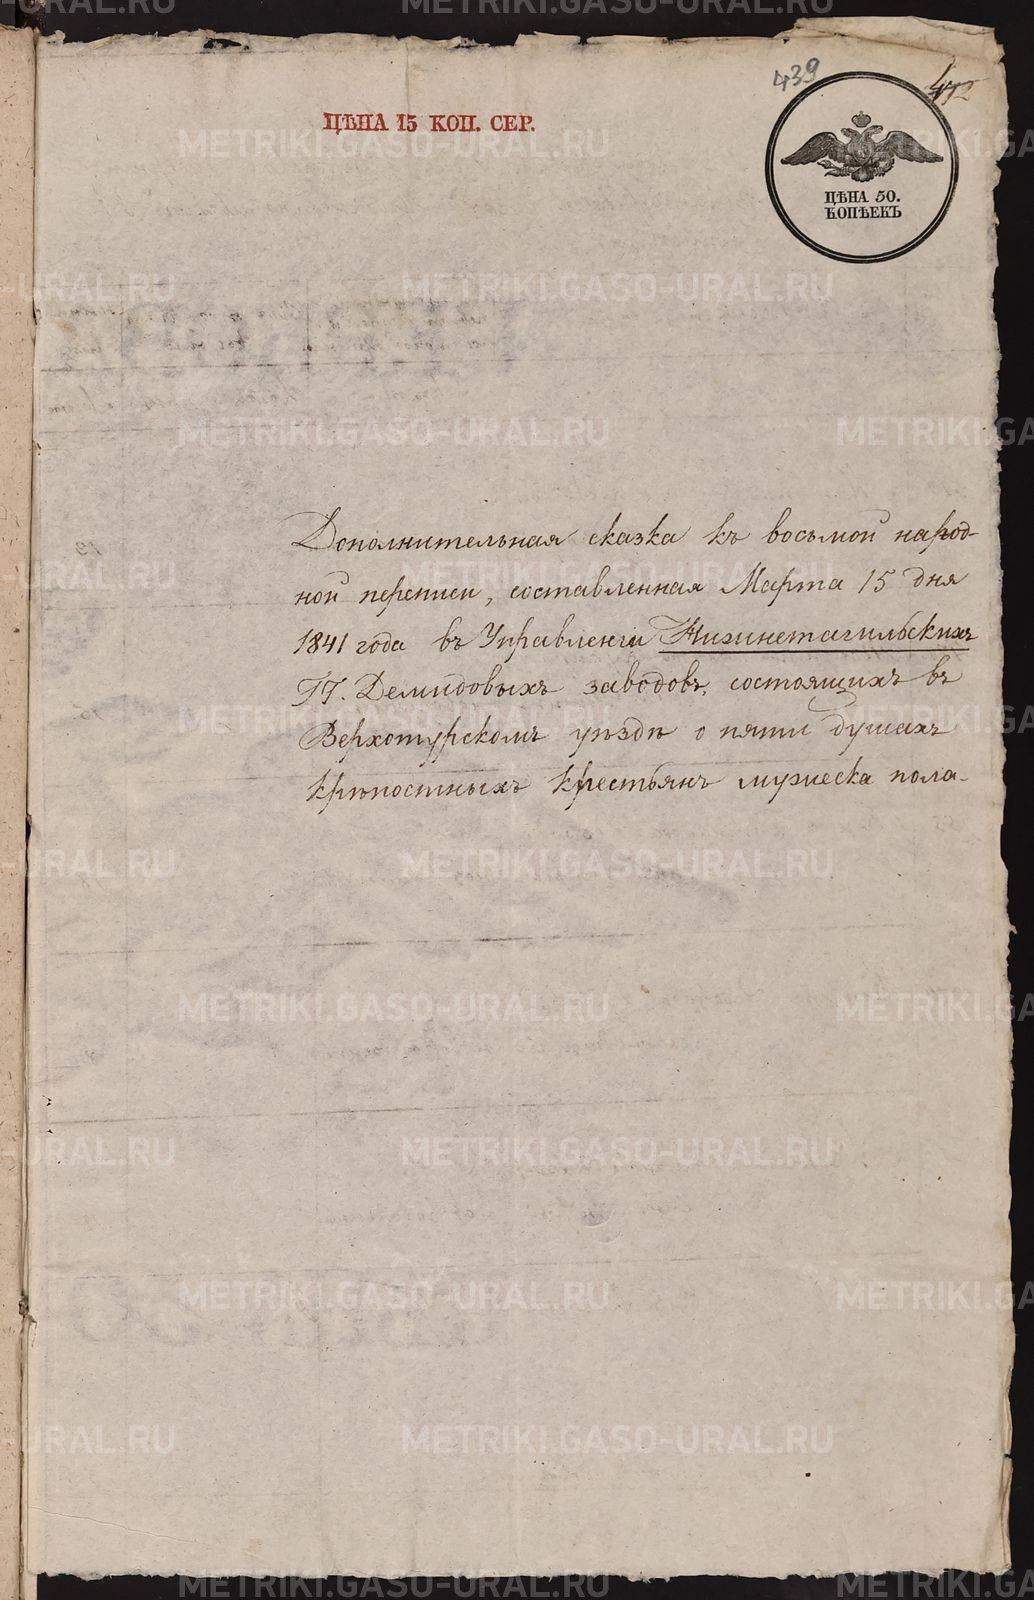 439
ЦѢНА 15 КОП. СЕР.
ЦѢНА 50.
КОПѢЕКЪ
Дополнительная сказка къ восьмой народ-
ной переписи, составленная Марта 15 дня
1841 года въ Управленіи Нижнетагильскихъ
ГГ. Демидовыхъ заводовъ, состоящихъ въ
Верхотурскомъ уѣздѣ о пяти душахъ
крѣпостныхъ крестьянъ мужеска пола.
METRIKI.GASO-URAL.RU